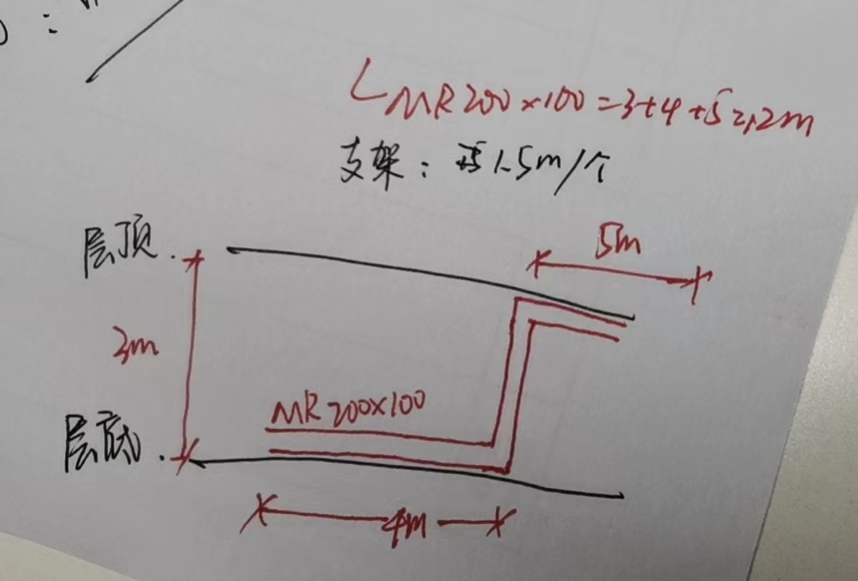 L MR200×100=3+4+5=12m
支架：1.5m/个
层顶
5m
3m
MR200×100
层底
4m